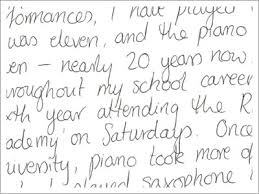 formances, I have played
was eleven, and the piano
en – nearly 20 years now.
roughout my school career
xth year attending the R
ademy on Saturdays. Once
iversity, piano took more of
played saxophone